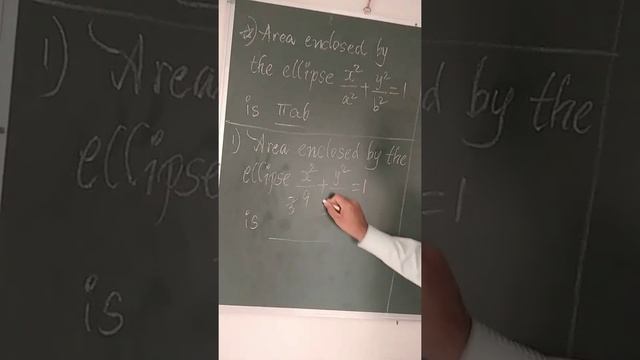 *) Area enclosed by
the ellipse x²/a² + y²/b² = 1
is πab
1) Area enclosed by the
ellipse x²/9 + y² = 1
3
is ______